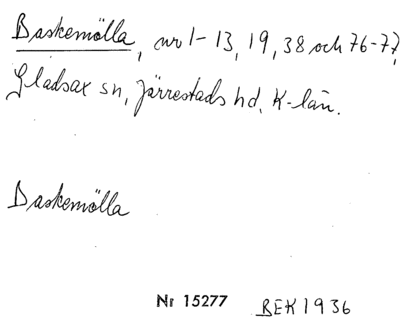 Baskemölla, nr 1-13, 19, 38 och 76-77,
Gladsax sn, Järrestads hd, K-län.
Baskemölla
Nr 15277 BEK 1936